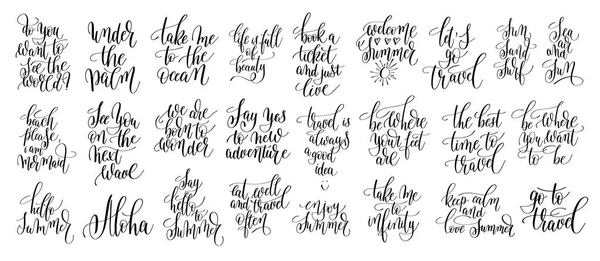 do you
want to
see the
world?
under
the
palm
take me
to the
ocean
life is full
of
beauty
book a
ticket
and just
live
welcome
summer
let's
go
travel
Sun
Sand
Surf
Sea
and
Sun
beach
please,
i am
mermaid
See you
on the
next
wave
we are
born to
wonder
Say yes
to new
adventure
travel is
always
a
good
idea
be where
your feet
are
the best
time to
travel
be where
you want
to be
hello
Summer
Aloha
Say
hello
to
Summer
eat well
and travel
often
enjoy
Summer
take me
to
infinity
keep calm
and
love Summer
go to
travel